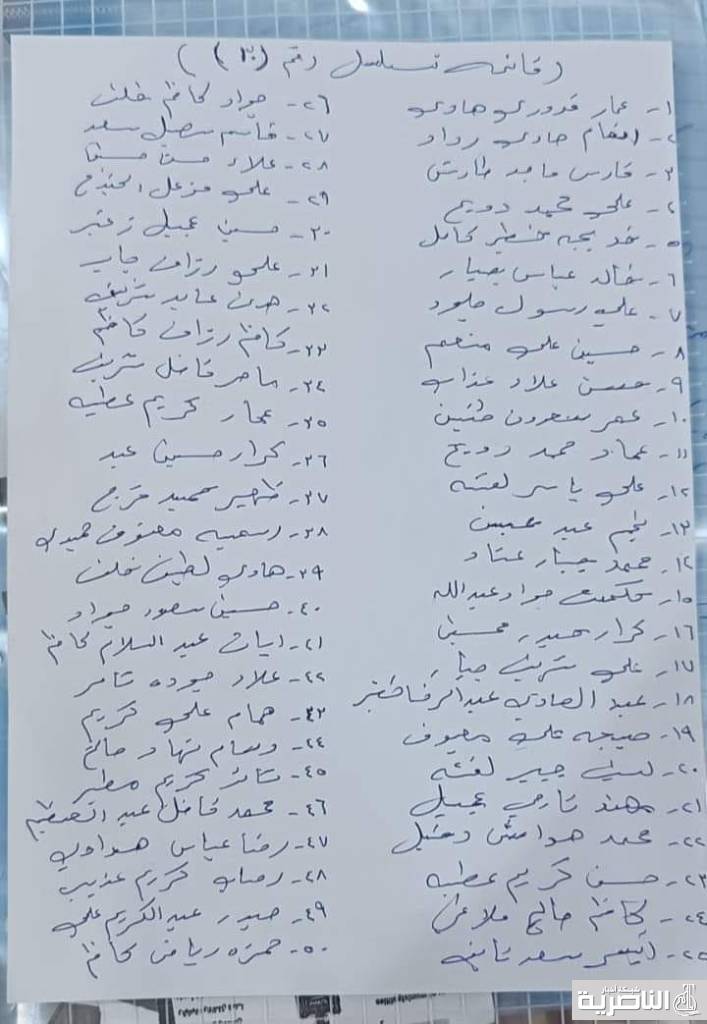 ( قائمة تسلسل رقم (٣) )
١- عمار قدوري هادي
٢- انغام هادي رداد
٣- فارس ماجد طارش
٤- علي محمد دويج
٥- خديجه خضير كامل
٦- خالد عباس
٧- علي رسول
٨- حسين علي منعم
٩- حسن علاء عذاب
١٠- عمر سعدون حنين
١١- عماد حمد دويج
١٢- علي ياسر لفته
١٣- نجم عبد
١٤- محمد جبار عناد
١٥- حكمت جواد عبدالله
١٦- كرار حيدر محسن
١٧- علي شريف جبار
١٨- عبد الهادي عبدالرضا خضير
١٩- صبيحه علي معيوف
٢٠- جبير لفته
٢١- مهند ناجي جميل
٢٢- محمد هوا
٢٣- حسن كريم عطيه
٢٤- كاظم صالح
٢٥- سعد
٢٦- جواد كاظم خلف
٢٧- قاسم سعد
٢٨- علاء حسن
٢٩- علي مزعل
٣٠- حسين جميل زغير
٣١- علي رزاق جاب
٣٢- عايد شريف
٣٣- كاظم رزاق كاظم
٣٤- ماهر فاضل شريف
٣٥- عمار كريم عطيه
٣٦- كرار حسين عبد
٣٧- ظهير حميد فرج
٣٨- رسميه معيوف حميدي
٣٩- هادي لطيف خلف
٤٠- حسين سعود جواد
٤١- ايات عبد السلام كاظم
٤٢- علاء جوده ثامر
٤٣- همام علي كريم
٤٤- وسام نهاد صالح
٤٥- ثائر كريم مطير
٤٦- محمد فاضل عبد العظيم
٤٧- رضا عباس هداوي
٤٨- كريم عذيب
٤٩- حيدر عبدالكريم علي
٥٠- حمزه رياض كاظم
شبكة اخبار
الناصرية